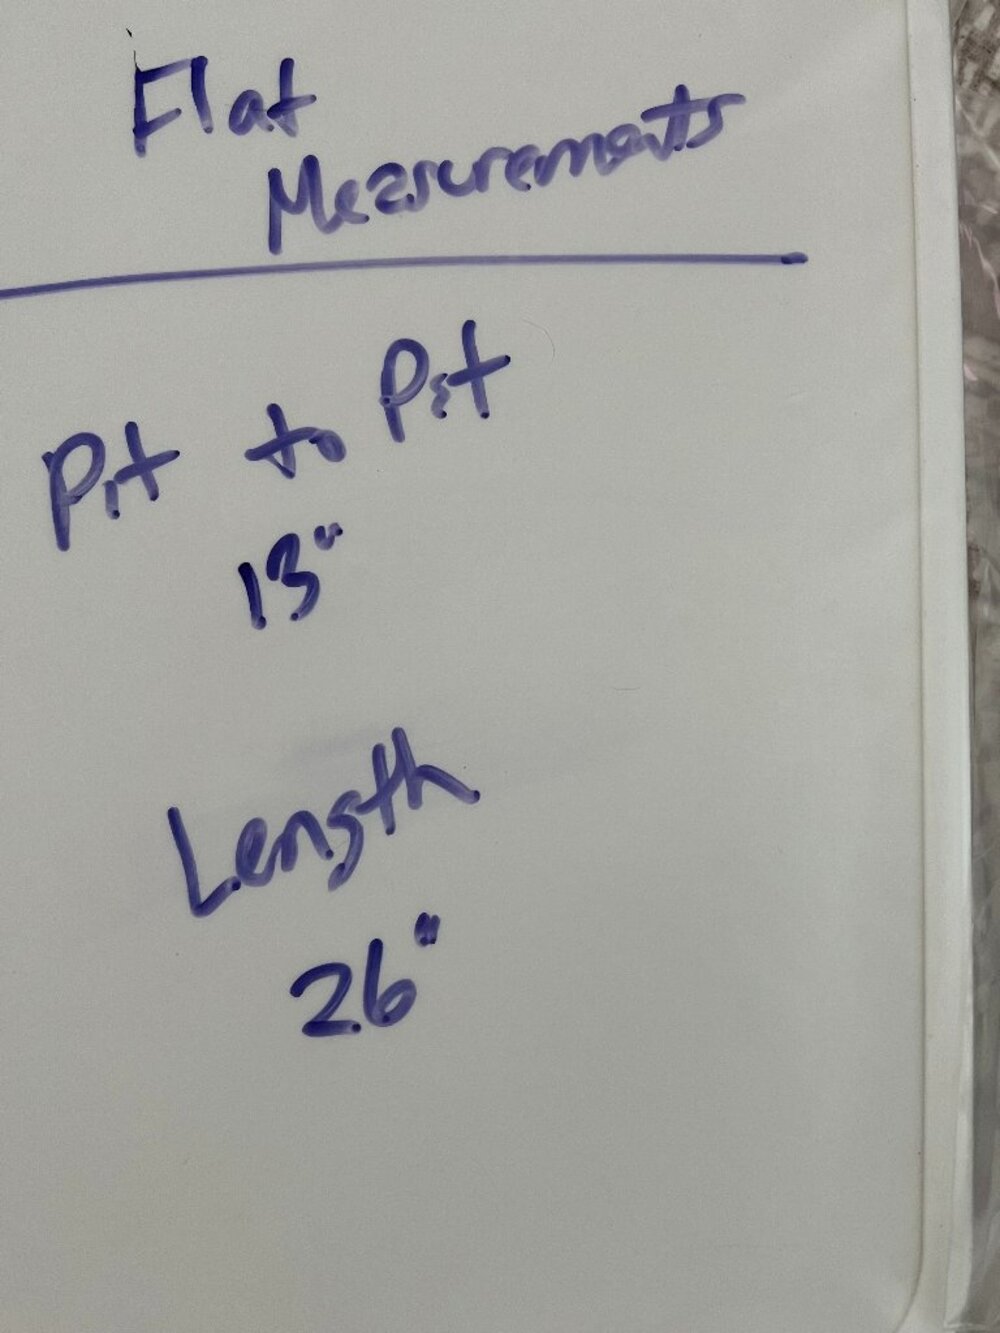 Flat
Measurements
Pit to Pit
13"
Length
26"